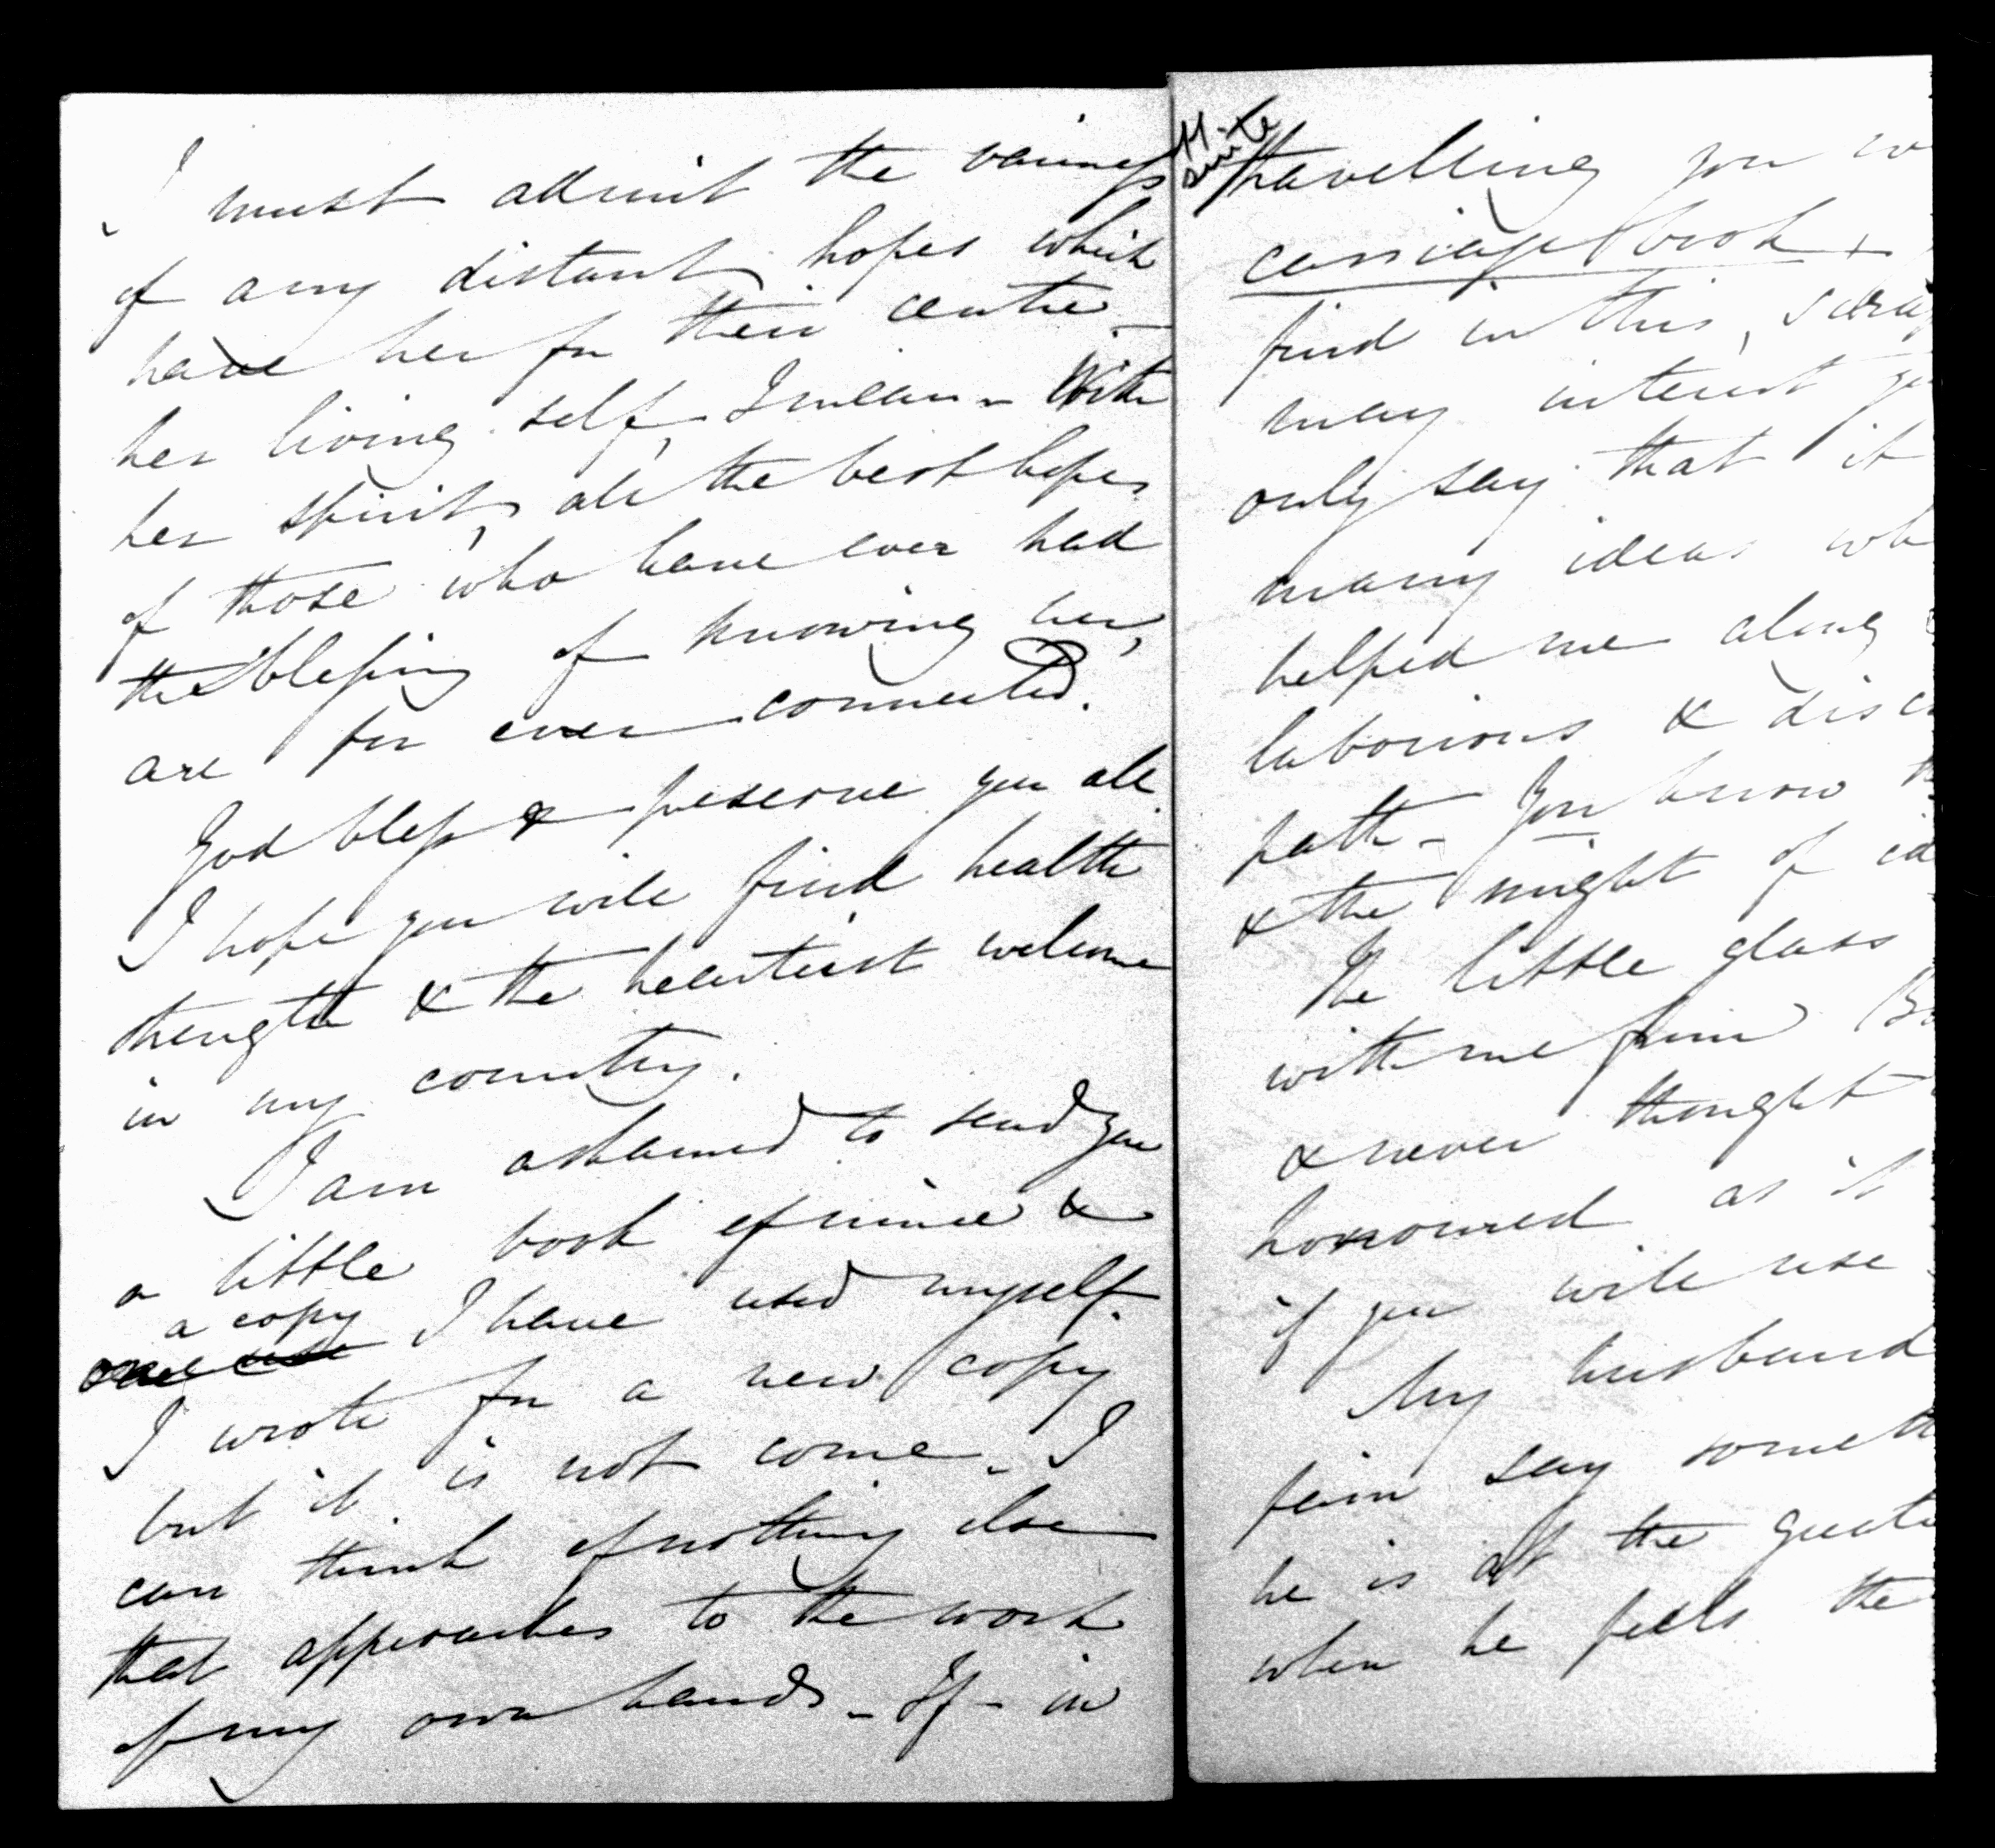 I must admit the vainness
of any distant hopes which
have her for their centre –
her living self, I mean – With
her spirit, all the best hopes
of those who have ever had
the blessing of knowing her,
are for ever connected.
God bless & preserve you all.
I hope you will find health
strength & the heartiest welcome
in my country.
I am ashamed to send you
a little book of mine &
a copy
I have used myself.
I wrote for a new copy
but it is not come – I
can think of nothing else
that approaches to the work
of my own hands – If – in
suite
travelling you
carriage book &
find in this,
may interest
only say that it
many ideas
helped me along
laborious &
path – You know
& the might of
The little glass
with me from
& never thought
honoured as it
if you will use
My husband
fain say
he is at the
when he feels the